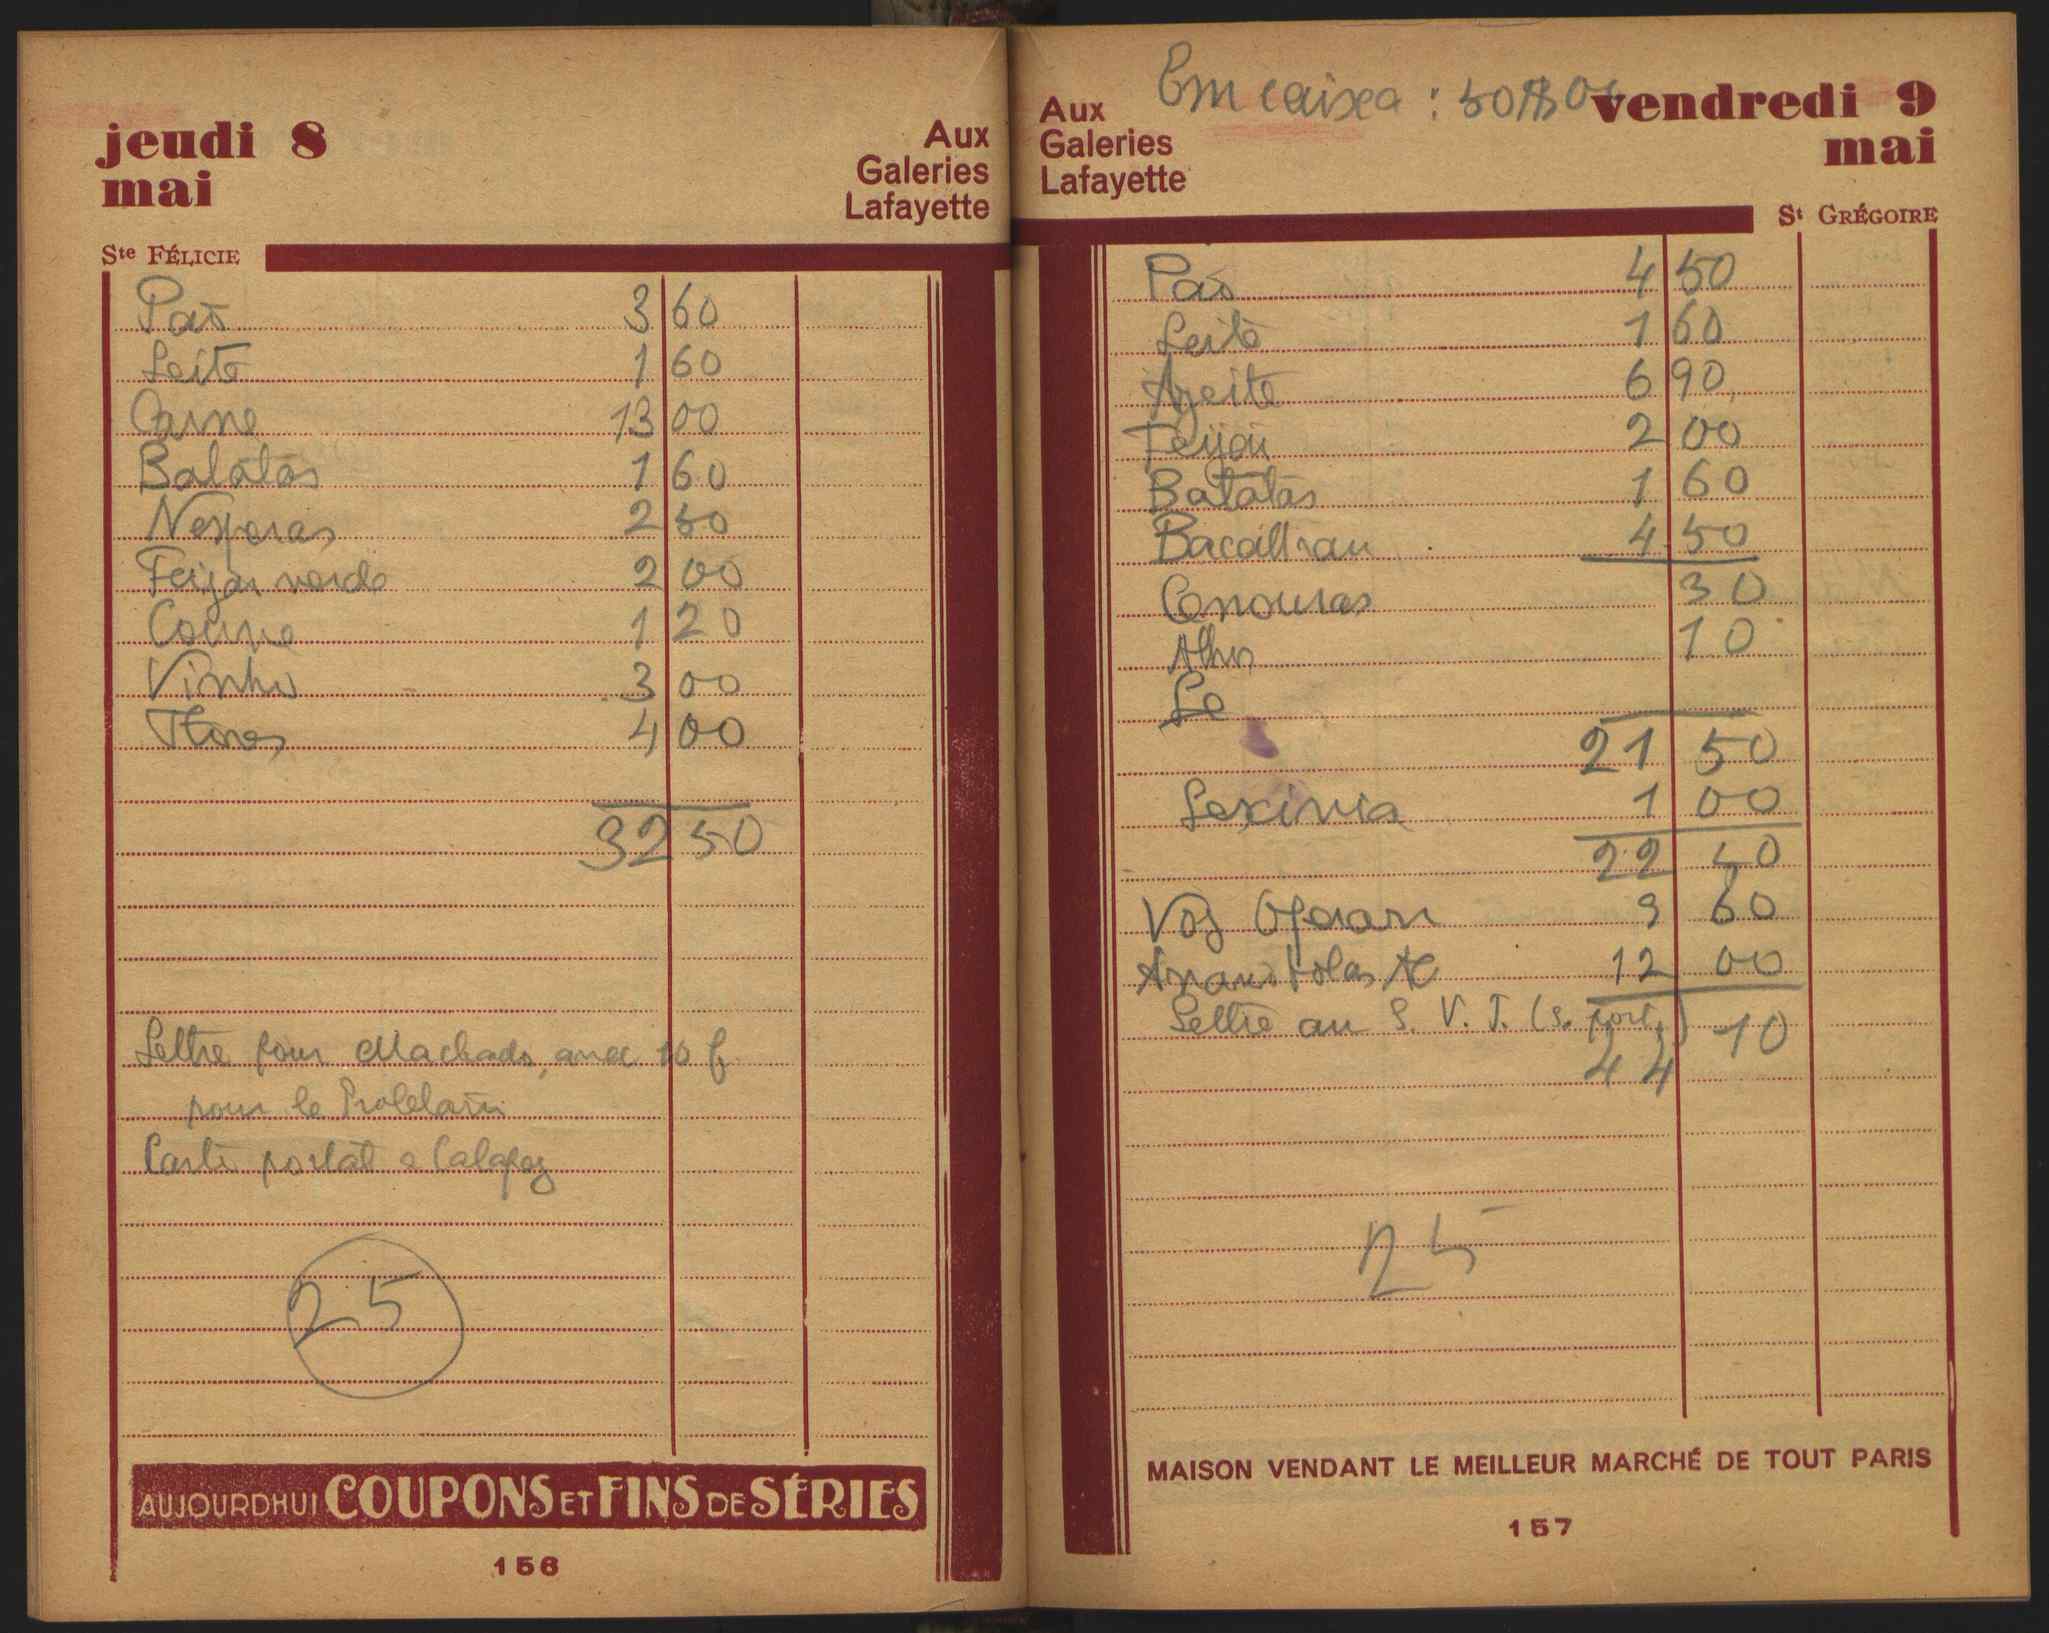 jeudi 8
mai
Aux
Galeries
Lafayette
Ste FÉLICIE
Pão 3 60
Leite 1 60
Carne 13 00
Batatas 1 60
Nesperas 2 50
Feijão verde 2 00
Couve 1 20
Vinho 3 00
Flores 4 00
32 50
Lettre pour Machado, avec 10 f
pour le Proletari
Carte postal a Calapez
25
AUJOURDHUI COUPONS ET FINS DE SÉRIES
156
Em caixa : 50$0
Aux
Galeries
Lafayette
vendredi 9
mai
St GRÉGOIRE
Pão 4 50
Leite 1 60
Azeite 6 90
Feijão 2 00
Batatas 1 60
Bacalhau 4 50
Cenouras 30
Alhos 10
Le
21 50
Lexivia 1 00
22 50
Voz Operari 9 60
12 00
Lettre au S. V. J. (s. port.)
44 10
25
MAISON VENDANT LE MEILLEUR MARCHÉ DE TOUT PARIS
157